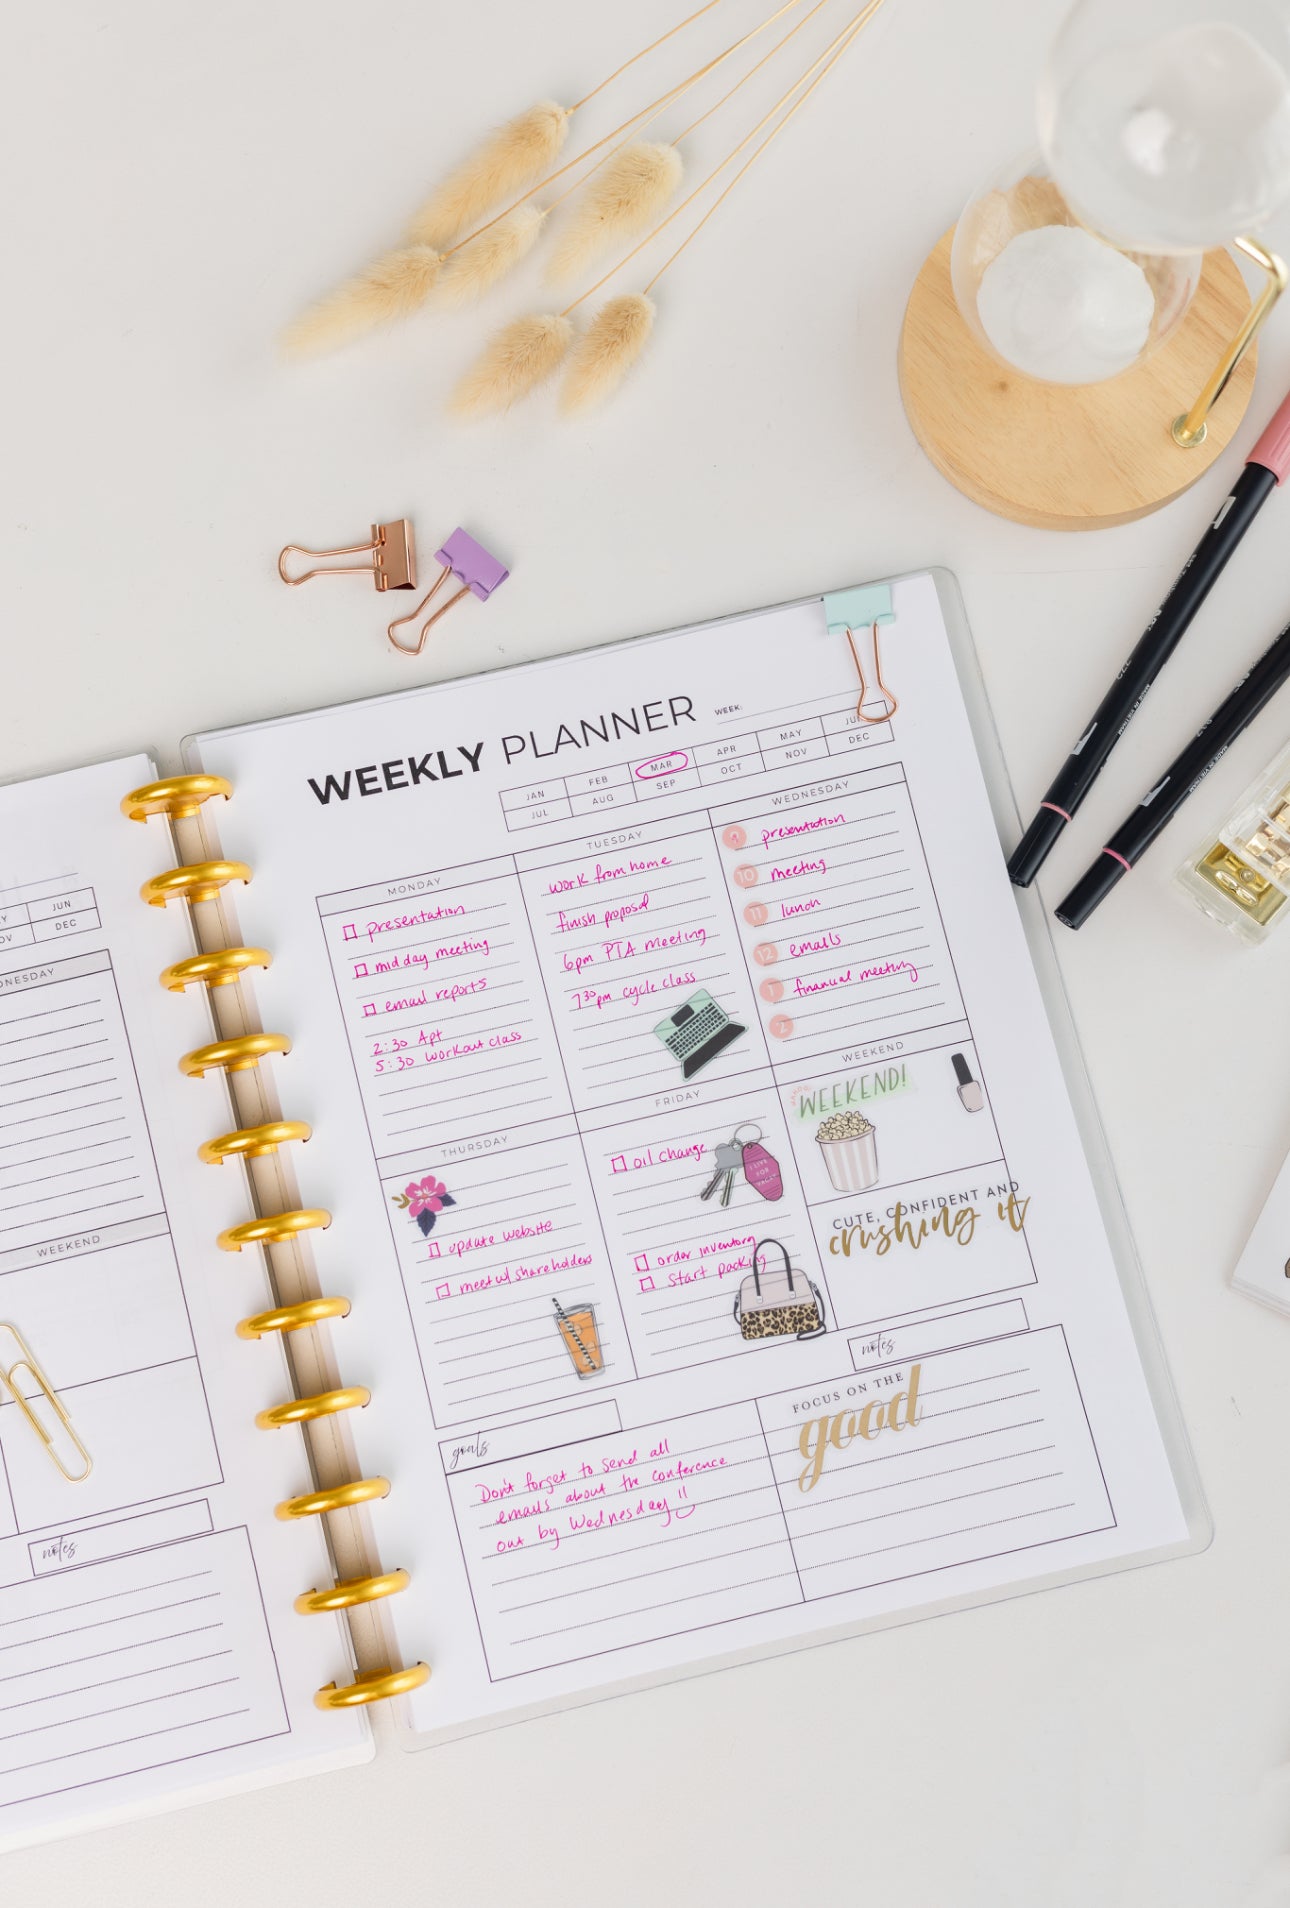 WEEKLY PLANNER
WEEK:
JAN FEB MAR APR MAY
JUL AUG SEP OCT NOV DEC
MONDAY
presentation
midday meeting
email reports
2:30 Apt
5:30 workout class
TUESDAY
work from home
finish proposal
6pm PTA meeting
7³⁰pm cycle class
WEDNESDAY
9 presentation
10 meeting
11 lunch
12 emails
1 financial meeting
2
THURSDAY
update website
meet w/ shareholders
FRIDAY
oil change
I LIVE
FOR
order inventory
start packing
WEEKEND
WEEKEND!
CUTE, CONFIDENT AND
crushing it
goals
Don't forget to send all
emails about the conference
out by Wednesday!!
notes
FOCUS ON THE
good
JUN
DEC
WEEKEND
notes